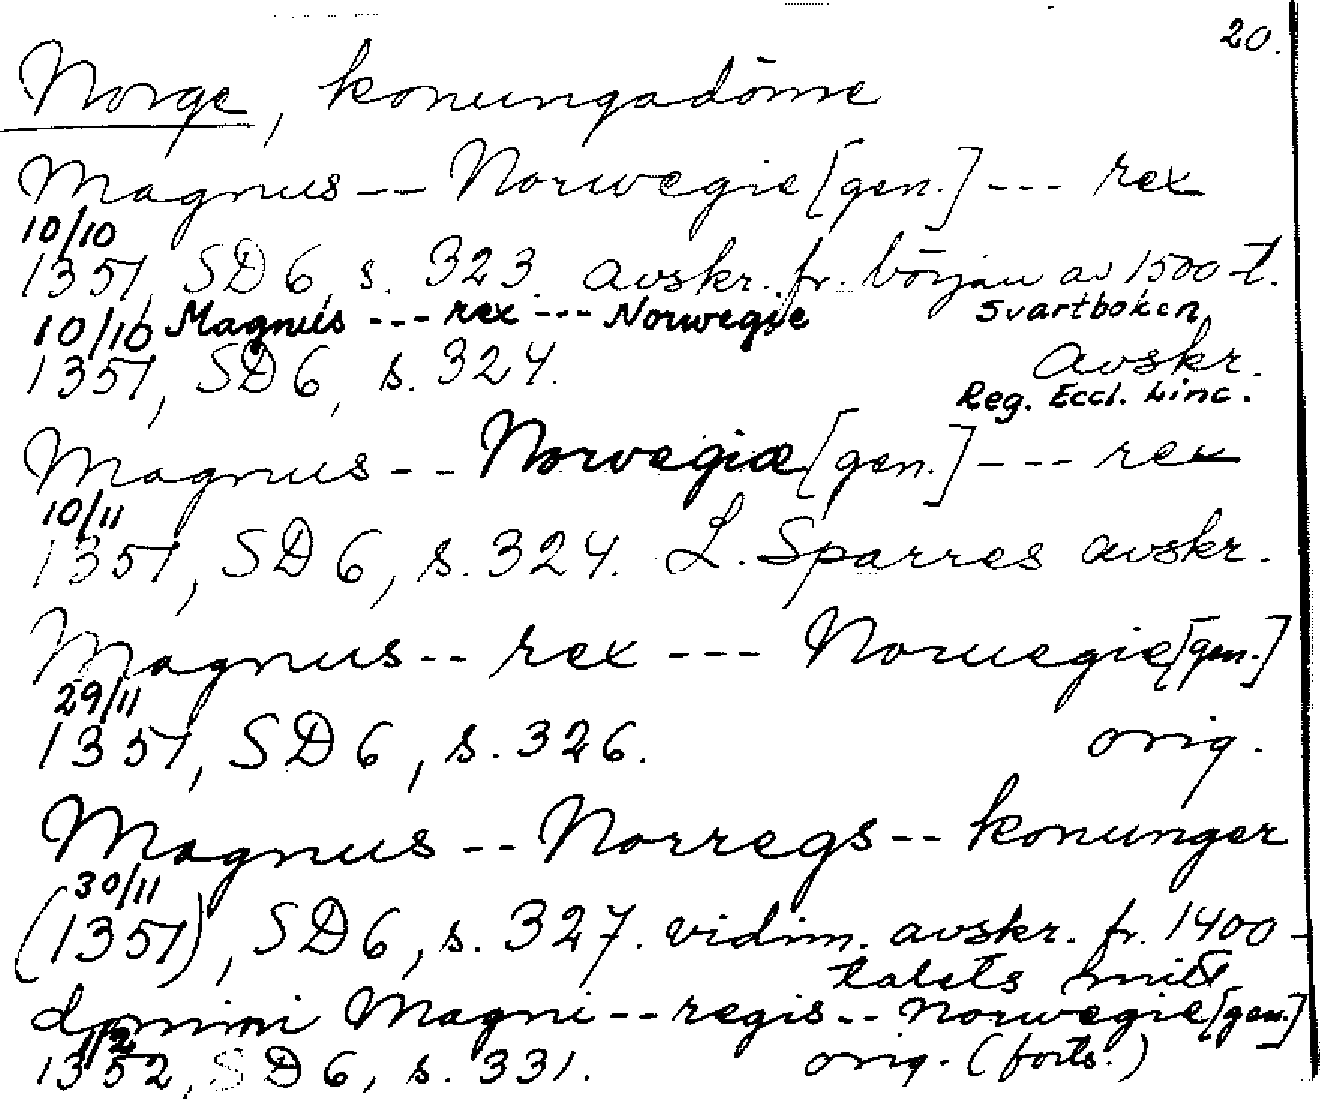 20.
Norge, konungadöme
Magnus -- Norwegie [gen.] --- rex
10/10
1351, SD 6, s. 323. avskr. fr. början av 1500-t.
Svartboken,
10/10 Magnus --- rex --- Norwegie
1351, SD 6, s. 324. avskr.
Reg. Eccl. Linc.
Magnus -- Norvegiæ [gen.] --- rex
10/11
1351, SD 6, s. 324. L. Sparres avskr.
Magnus -- rex --- Noruegie [gen.]
29/11
1351, SD 6, s. 326. orig.
Magnus -- Norregs -- konunger
30/11
(1351), SD 6, s. 327. vidim. avskr. fr. 1400-
talets mitt
domini Magni -- regis -- Norwegie [gen.]
1/2
1352, SD 6, s. 331. orig. (forts.)